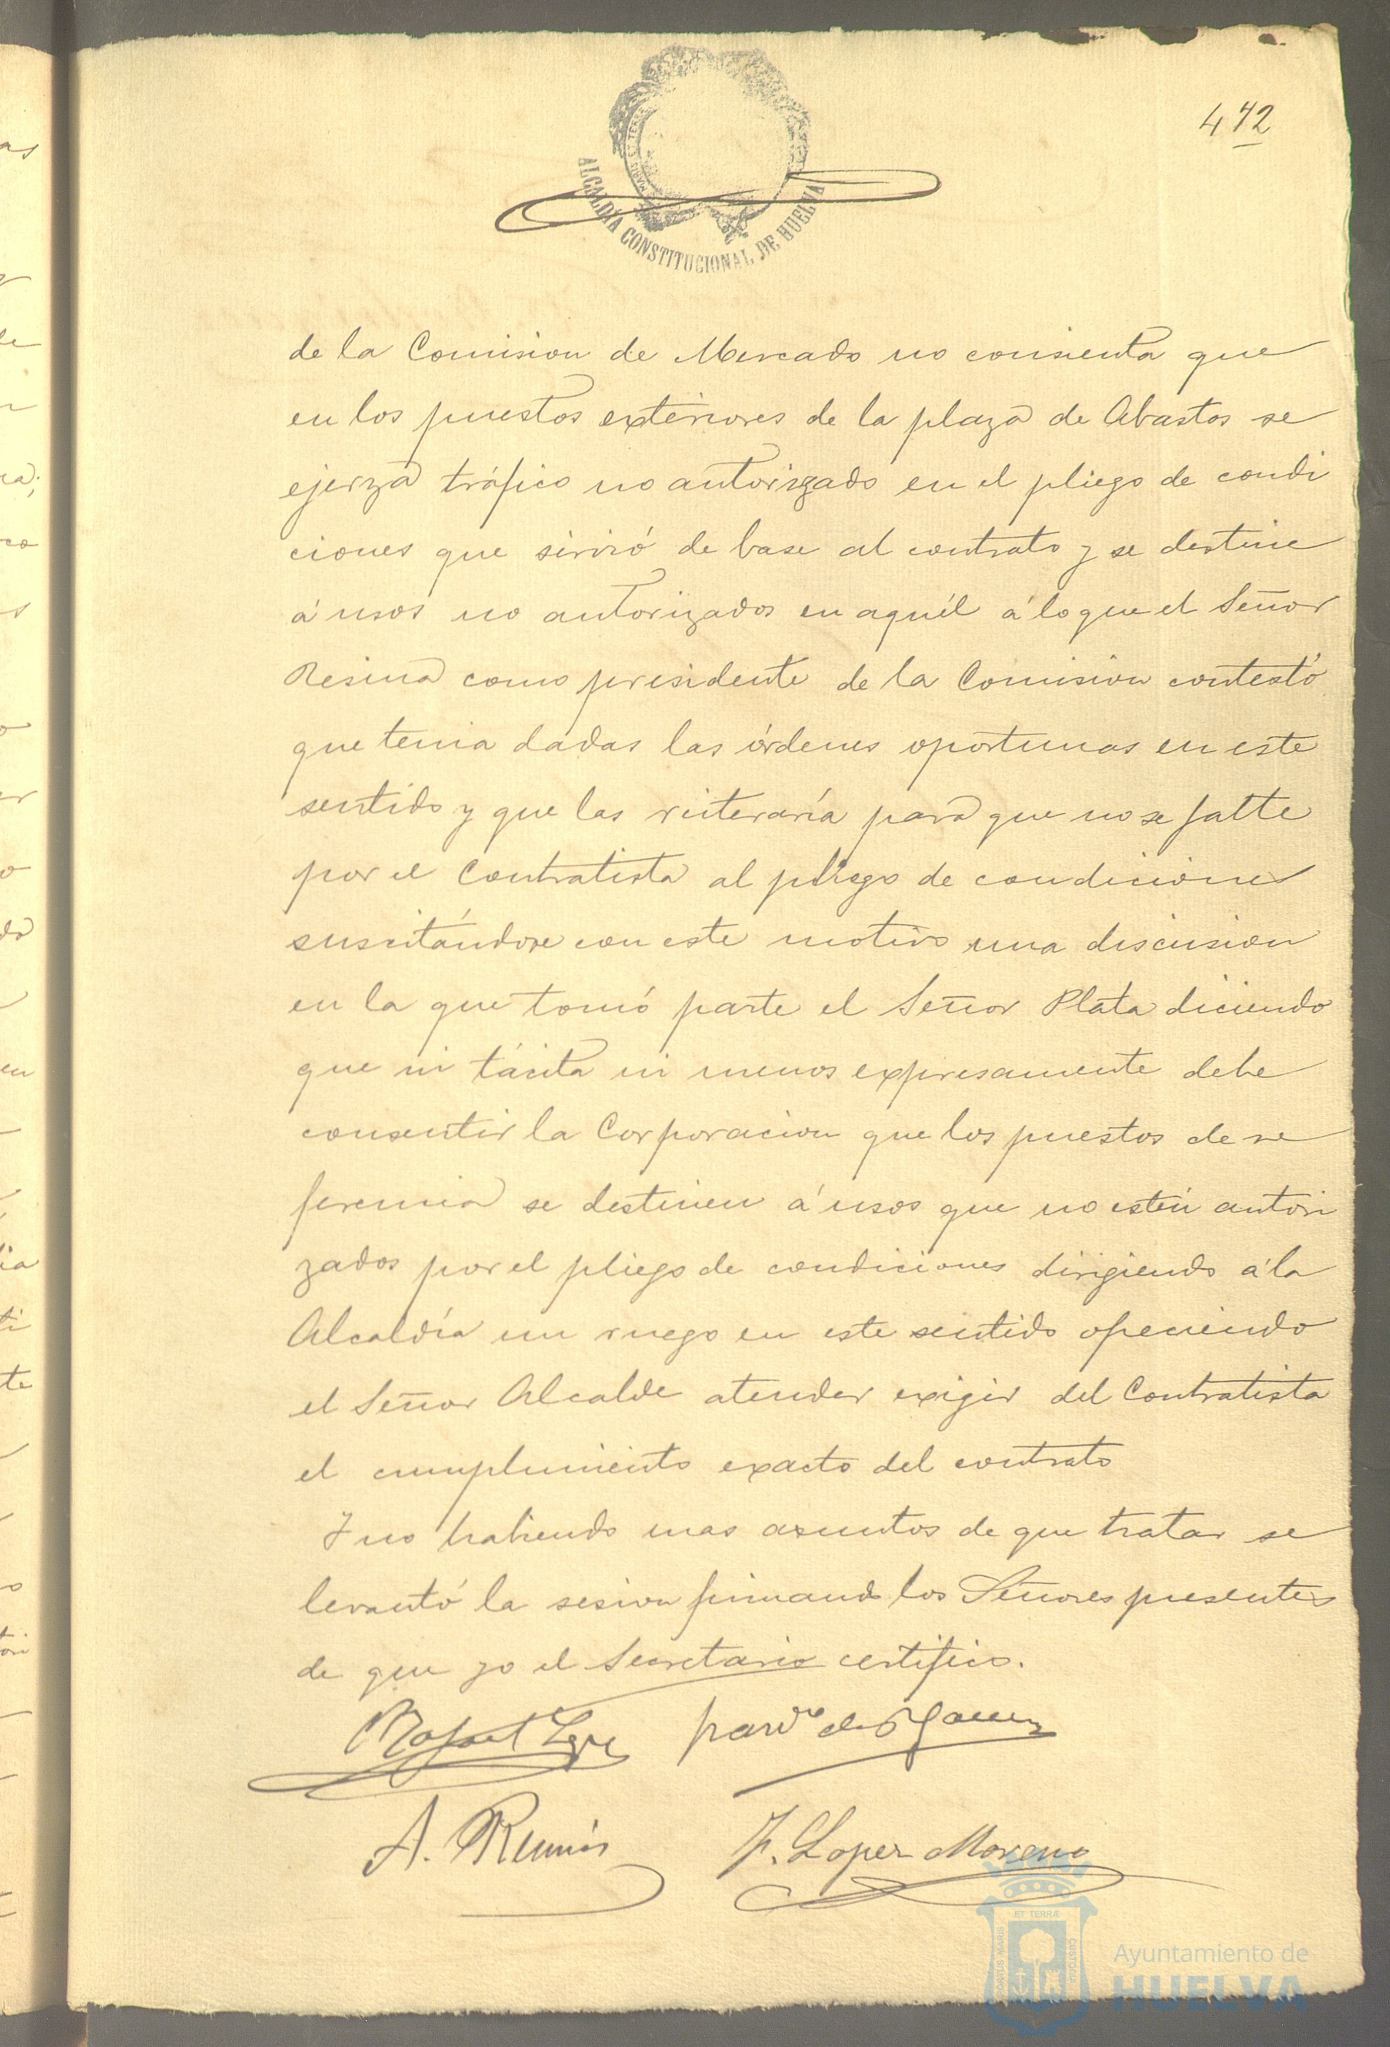 472
ALCALDÍA CONSTITUCIONAL DE HUELVA
de la Comision de Mercado no consienta que
en los puestos exteriores de la plaza de Abastos se
ejerza tráfico no autorizado en el pliego de condi
ciones que sirvió de base al contrato y se destine
á usos no autorizados en aquél á lo que el Señor
Resina como presidente de la Comision contestó
que tenia dadas las órdenes oportunas en este
sentido y que las reiteraría para que no se falte
por el Contratista al pliego de condiciones
suscitándose con este motivo una discusion
en la que tomó parte el Señor Plata diciendo
que ni tácita ni menos expresamente debe
consentir la Corporacion que los puestos de re
ferencia se destinen á usos que no estén autori
zados por el pliego de condiciones dirigiendo á la
Alcaldía un ruego en este sentido ofreciendo
el Señor Alcalde atender exigir del Contratista
el cumplimiento exacto del contrato
Y no habiendo mas asuntos de que tratar se
levantó la sesion firmando los Señores presentes
de que yo el Secretario certifico.
Rafael
A.
F. Lopez Moreno
ET TERRÆ
CUSTODIA
Ayuntamiento de
HUELVA